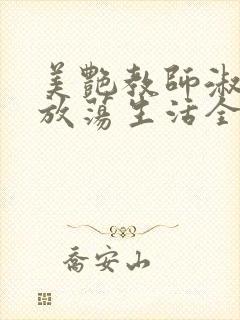 美艷教師淑
放蕩生活全
喬安山